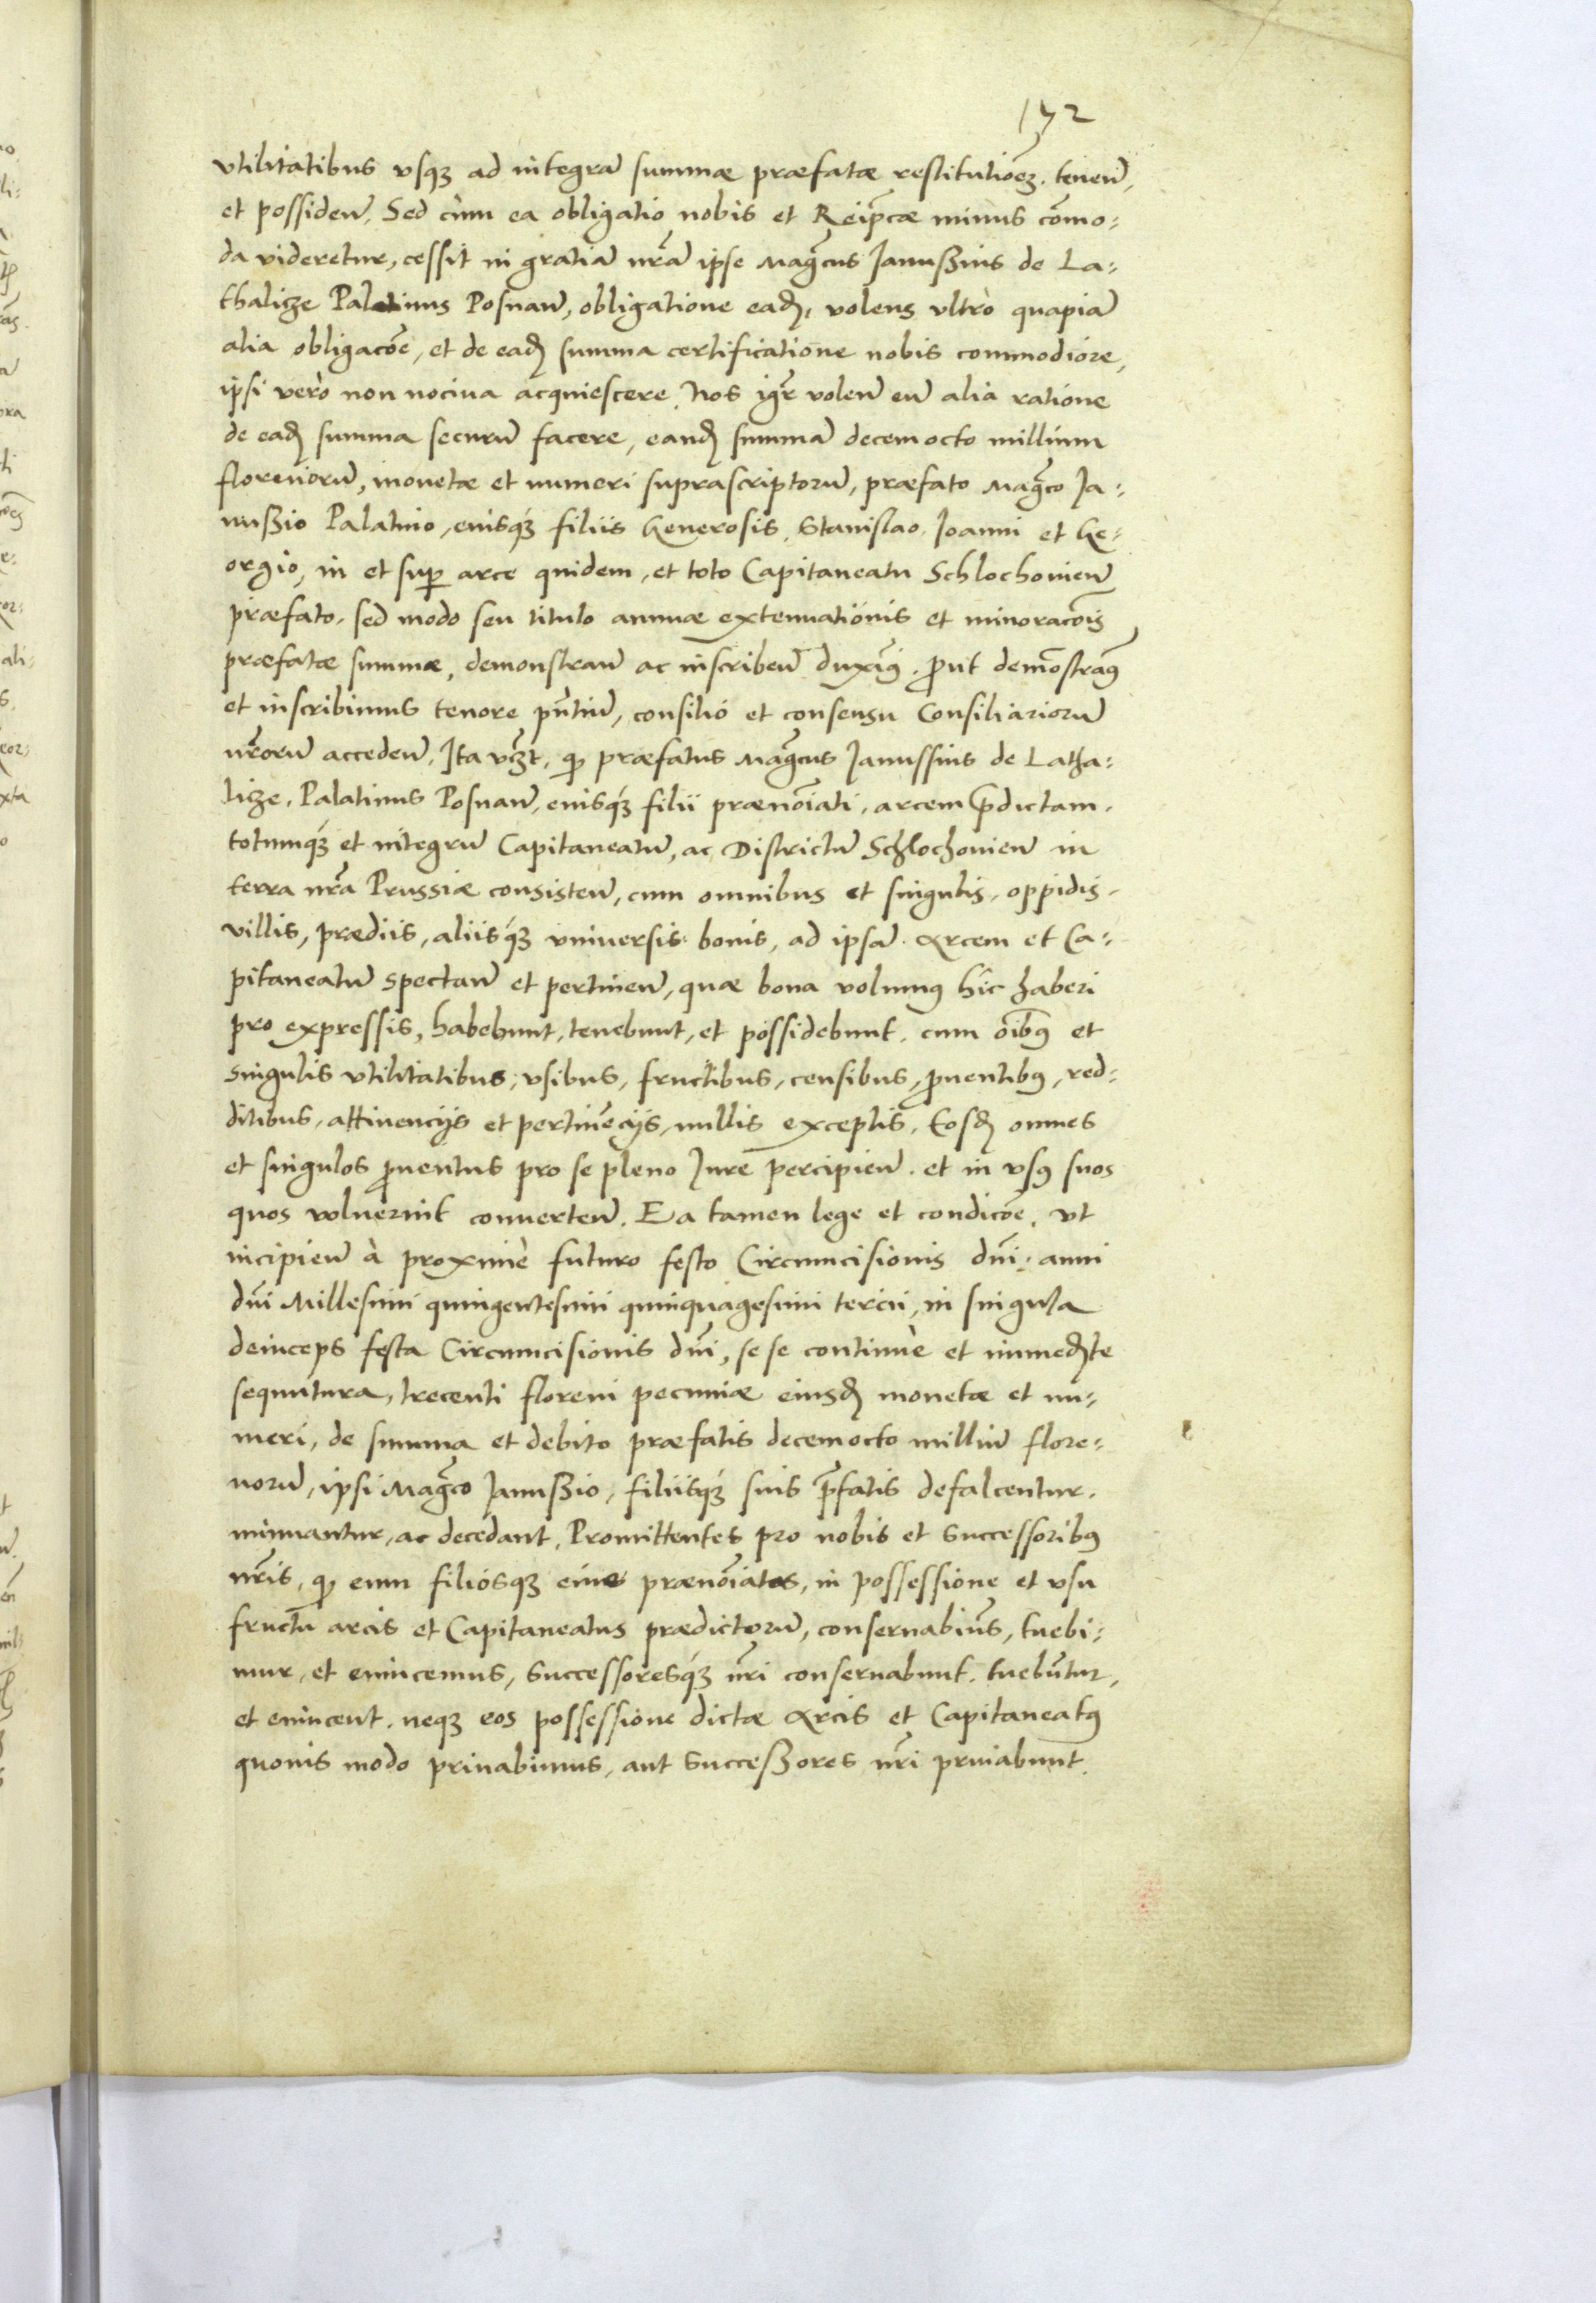 172
vtilitatibus vsqꝫ ad integrã summæ præfatæ restitutiõeꝫ. teneñ,
et possideñ. Sed cùm ea obligatio nobis et Reip̃cæ minus cõmo:
da videretur, cessit in gratiã nr̃ã ipse Mag̃cus Janußius de La:
thalicze Palatinus Posnañ, obligatione eadꝫ, volens vltrò quapiã
alia obligacõe, et de eadꝫ summa certificatione nobis commodiore,
ipsi verò non nociua acquiescere. Nos igr̃ voleñ eũ alia ratione
de eadꝫ summa securũ facere, eandꝫ summã decemocto millium
florenorũ, monetæ et numeri suprascriptorũ, præfato Mag̃co Ja:
nußio Palatino, eiusqꝫ filiis Generosis, Stanislao, Joanni et Ge:
orgio, in et suꝑ arce quidem, et toto Capitaneatu Schlochouieñ
præfato, sed modo seu titulo annuæ extenuationis et minoracõis
præfatæ summæ, demonstrañ ac inscribeñ duxim⁹. ꝓut demõstram⁹
et inscribimus tenore pñtiũ, consilio et consensu Consiliariorũ
nr̃orũ accedeñ. Ita vꝫt, ꝙ præfatus Mag̃cus Janussius de Latha:
licze, Palatinus Posnañ, eiusqꝫ filii prænõiati, arcem p̃dictam,
totumqꝫ et integrũ Capitaneatũ, ac Districtũ Schlochouieñ in
terra nr̃a Prussiæ consisteñ, cum omnibus et singulis, oppidis,
villis, prædiis, aliisqꝫ vniuersis bonis, ad ipsã Arcem et Ca:
pitaneatũ spectañ et pertineñ, quæ bona volumus hîc haberi
pro expressis, habebunt, tenebunt, et possidebunt, cum oĩb⁹ et
singulis vtilitatibus, vsibus, fructibus, censibus, ꝓuentib⁹, red:
ditibus, attinencijs et pertinẽcijs, nullis exceptis. Eosdꝫ omnes
et singulos ꝓuentus pro se pleno Jure percipieñ, et in vsus suos
quos voluerint conuerteñ. Ea tamen lege et condicõe, vt
incipieñ à proximè futuro festo Circumcisionis dñi, anni
dñi Millesimi quingentesimi quinquagesimi tercii, in singula
deinceps festa Circumcisionis dñi, se se continuè et immedꝫte
sequutura, trecenti floreni pecuniæ eiusdꝫ monetæ et nu:
meri, de summa et debito præfatis decemocto milliũ flore:
norũ, ipsi Mag̃co Janußio, filiisqꝫ suis p̃fatis defalcentur,
minuantur, ac decedant. Promittentes pro nobis et Successorib⁹
nr̃is, ꝙ eum filiosqꝫ eius prænõiatos, in possessione et vsu
fructu arcis et Capitaneatus prædictorũ, conseruabim⁹, tuebi:
mur, et euincemus, Successoresqꝫ nr̃i conseruabunt, tuebũtur,
et euincent, neqꝫ eos possessione dictæ Arcis et Capitaneatus
quouis modo priuabimus, aut Succeßores nr̃i priuabunt.